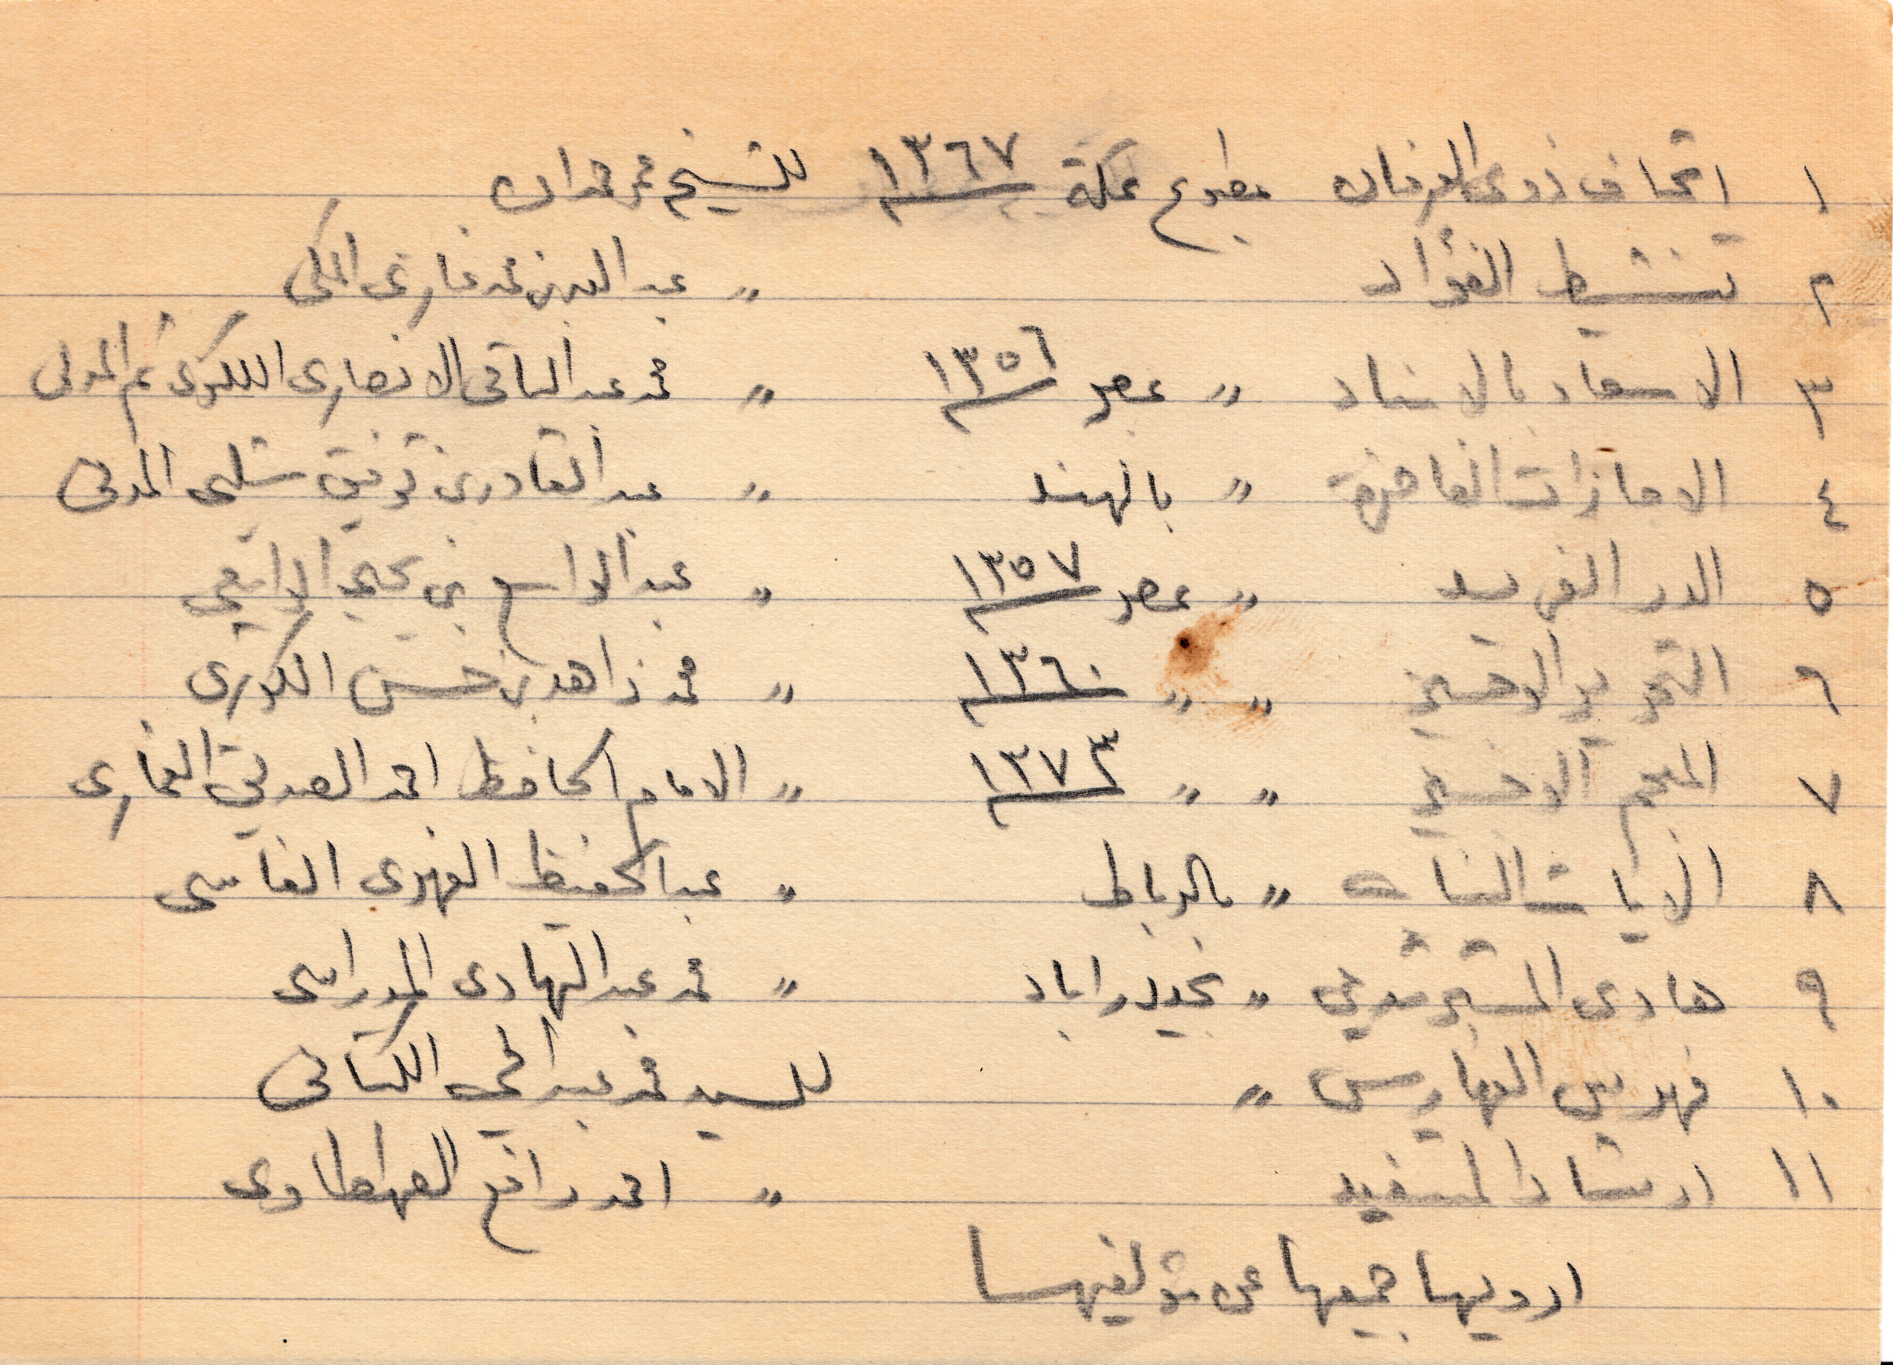 ١ اتحاف ذوى العرفان مطبوع بمكة ١٣٦٧ للشيخ عمر حمدان
٢ تنشيط الفؤاد " عبد الله بن محمد غازى المكى
٣ الاسعاد بالاسناد " بمصر ١٣٥٦ " محمد عبد الباقى الانصارى اللكنوى ثم المدنى
٤ الاجازات الفاخرة " بالهند " عبد القادر بن توفيق شلبى المدنى
٥ الدر الفريد " بمصر ١٣٥٧ " عبد الواسع بن يحيى الواسعي
٦ التحرير الوجيز " " ١٣٦٠ " محمد زاهد بن حسن الكوثرى
٧ المعجم الوجيز " " ١٣٧٣ " الامام الحافظ احمد الصديق الغمارى
٨ الايات البينات " بالرباط " عبد الحفيظ الفهرى الفاسى
٩ هادى المسترشدين " بحيدراباد " محمد عبد الهادى المدراسى
١٠ فهرس الفهارس " للسيد محمد عبد الحي الكتانى
١١ ارشاد المستفيد " احمد رافع الطهطاوى
ارويها جميعها عن مؤلفيها